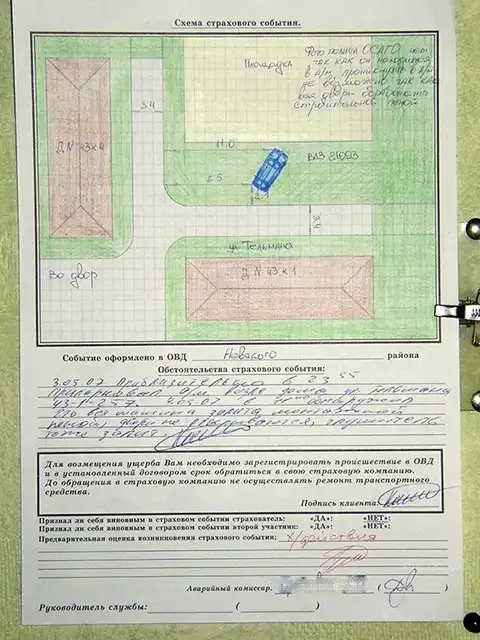 Схема страхового события.
Фото полиса ОСАГО нет
так как он находится
в а/м, проникнуть в а/м
не возможно так как
все двери обработаны
строительной пеной
Площадка
3.4
Д N 43 к 4
11.0
ВАЗ 21093
2.5
3.4
ул Тельмана
Д N 43 к 1
Во двор
Событие оформлено в ОВД Невского района
Обстоятельства страхового события:
3.05.07 приблизительно в 23 55
возле дома ул Тельмана
что вся машина залита монтажной
пеной, двери не открываются, глушитель
тоже залит
Для возмещения ущерба Вам необходимо зарегистрировать происшествие в ОВД
и в установленный договором срок обратиться в свою страховую компанию.
До обращения в страховую компанию не осуществлять ремонт транспортного
средства.
Подпись клиента:
Признал ли себя виновным в страховом событии страхователь: «ДА»: «НЕТ»:
Признал ли себя виновным в страховом событии второй участник: «ДА»: «НЕТ»:
Предварительная оценка возникновения страхового события: Х/действия
Аварийный комиссар. ( )
Руководитель службы: ( )